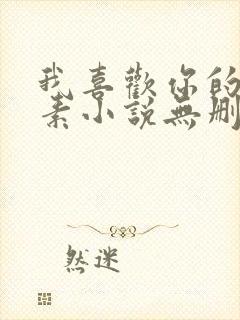 我喜歡你的
素小說無刪
然迷